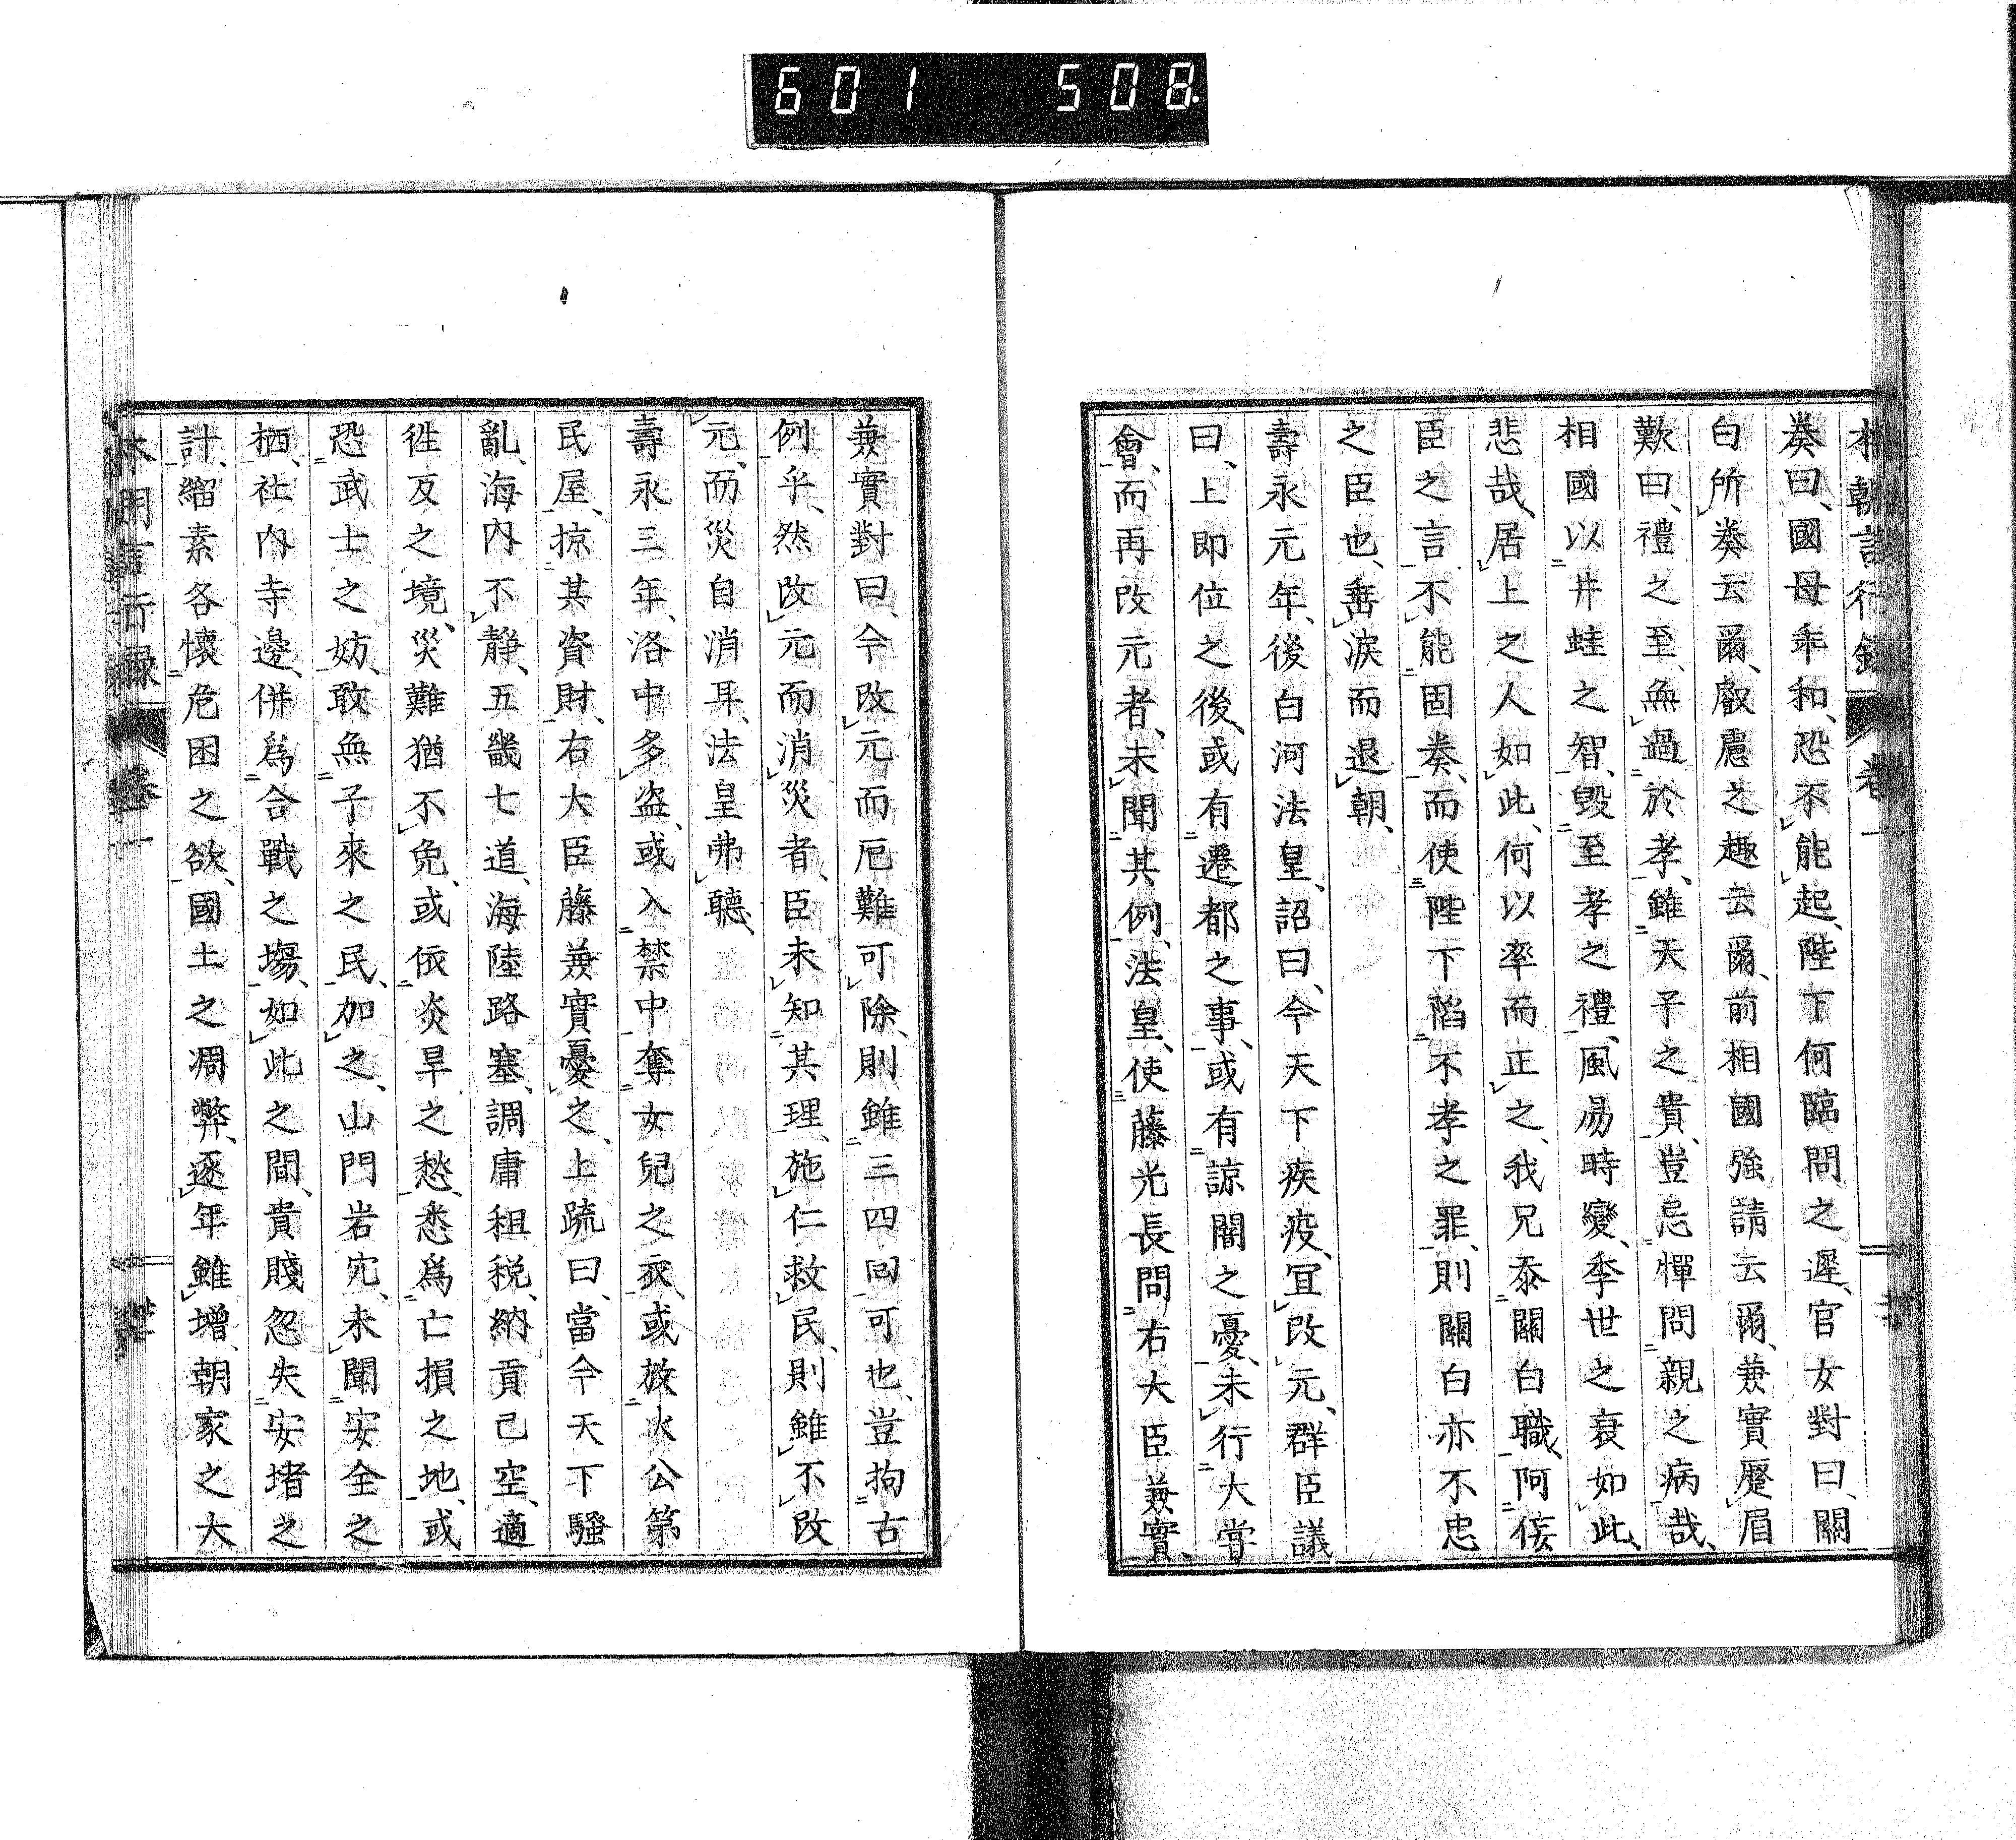 601 508.
本朝言行錄 卷一
奏曰、國母乖和、恐不能起、陛下何臨問之遲、官女對曰、關
白所奏云爾、叡慮之趣云爾、前相國強請云爾、兼實蹙眉
歎曰、禮之至、無過於孝、雖天子之貴、豈忌憚問親之病哉、
相國以井蛙之智、毀至孝之禮、風易時變、季世之衰如此、
悲哉、居上之人如此、何以率而正之、我兄忝關白職、阿佞
臣之言、不能固奏、而使陛下陷不孝之罪、則關白亦不忠
之臣也、垂淚而退朝、
壽永元年、後白河法皇、詔曰、今天下疾疫、宜改元、群臣議
曰、上即位之後、或有遷都之事、或有諒闇之憂、未行大嘗
會、而再改元者、未聞其例、法皇、使藤光長問右大臣兼實、
兼實對曰、今改元而厄難可除、則雖三四回可也、豈拘古
例乎、然改元而消災者、臣未知其理、施仁救民、則雖不改
元、而災自消耳、法皇弗聽、
壽永三年、洛中多盗、或入禁中奪女兒之衣、或放火公第
民屋、掠其資財、右大臣藤兼實憂之、上疏曰、當今天下騷
亂、海內不靜、五畿七道、海陸路塞、調庸租稅、納貢已空、適
徃反之境、災難猶不免、或依炎旱之愁、悉爲亡損之地、或
恐武士之妨、敢無子來之民、加之、山門岩穴、未聞安全之
栖、社內寺邊、併爲合戰之場、如此之間、貴賤忽失安堵之
計、緇素各懷危困之欲、國土之凋弊、逐年雖增、朝家之大
本朝言行錄 卷一